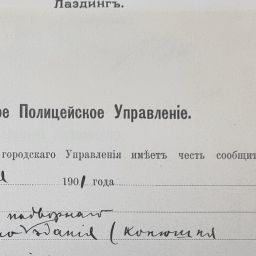 Лаздингъ.
ое Полицейское Управленіе.
городскаго Управленія имѣетъ честь сообщит
1901 года
надворнаго
зданія (конюшня